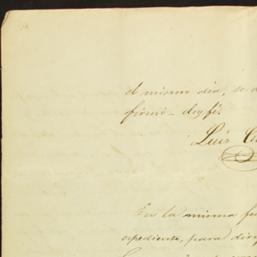 el mismo dia, se d
firmó - doy fé.
Luis C
En la misma fe
espediente, para di